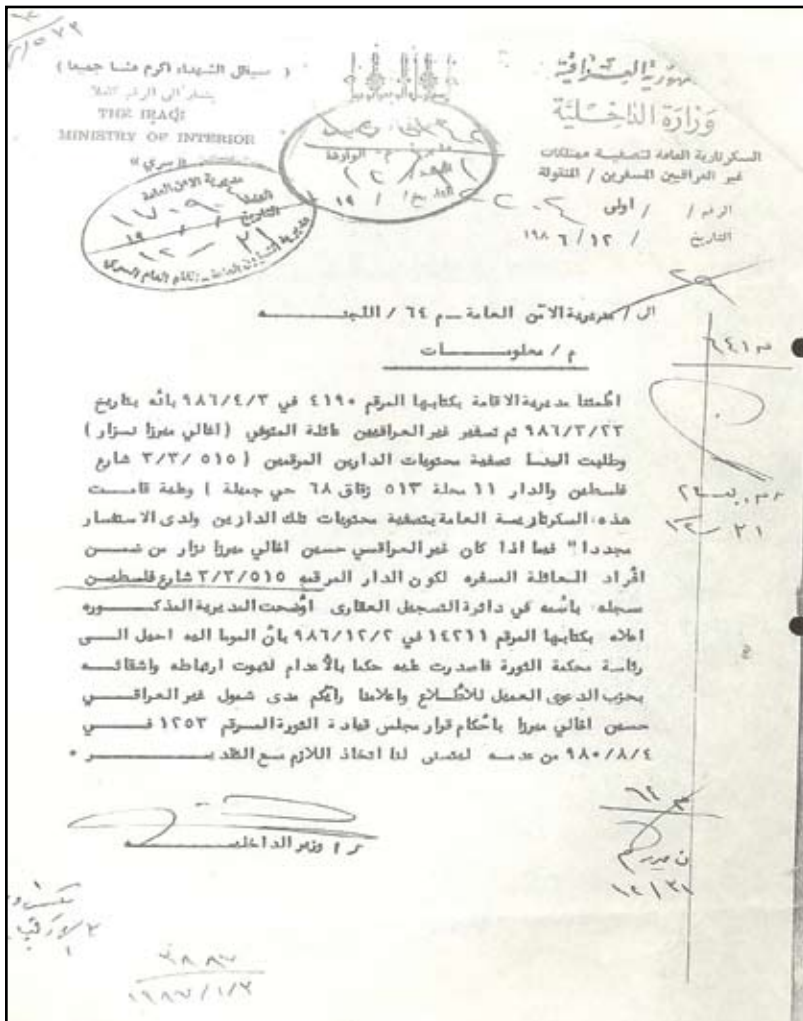 ( سيظل الشهداء أكرم منا جميعا )
THE IRAQI
MINISTRY OF INTERIOR
« سري »
الجمهورية العراقية
وزارة الداخلية
السكرتارية العامة لتصفية ممتلكات
غير العراقيين المسفرين / المنقولة
الرقم / / اولى
التاريخ / ١٢ / ١٩٨٦
مديرية الامن العامة
التاريخ / / ١٩
الى / مديرية الامن العامة – م ٦٤ / اللجنـــــه
م / معلومـــــات
اعلمتنا مديرية الاقامة بكتابها المرقم ٤١٩٠ في ٩٨٦/٤/٣ بانه بتاريخ
٩٨٦/٣/٢٣ تم تسفير غير العراقيين عائلة المتوفي ( اغالي ميرزا نـزار )
وطلبت الينـا تصفية محتويات الدارين المرقمين ( ٥١٥ /٣/٣ شارع
فلسطين والدار ١١ محلة ٥١٣ زقاق ٦٨ حي جميلة ) وعليه قامـت
هذه السكرتاريـة العامة بتصفية محتويات تلك الدارين ولدى الاستفسار
مجددا" فيما اذا كان غير العراقـي حسين اغالي ميرزا نزار من ضمـن
افراد العائلة المسفره لكون الدار المرقمه ٣/٣/٥١٥ شارع فلسطيـن
مسجله باسمه في دائرة التسجيل العقارى اوضحت المديرية المذكـوره
اعلاه بكتابها المرقم ١٤٢١١ في ٩٨٦/١٢/٢ بان الموما اليه احيل الـى
رئاسة محكمة الثورة فاصدرت عليه حكما بالأعدام لثبوت ارتباطه واشقائـه
بحزب الدعوى العميل للأطـلاع واعلامنا رأيكم مدى شمول غير العراقـي
حسين اغالي ميرزا باحكام قرار مجلس قيادة الثورة المـرقم ١٢٥٣ فـي
٩٨٠/٨/٤ من عدمـه ليتسنى لنا اتخاذ اللازم مع التقديـــر •
وزير الداخليـــه
١٢/٣١
١٩٨٧/١/٣